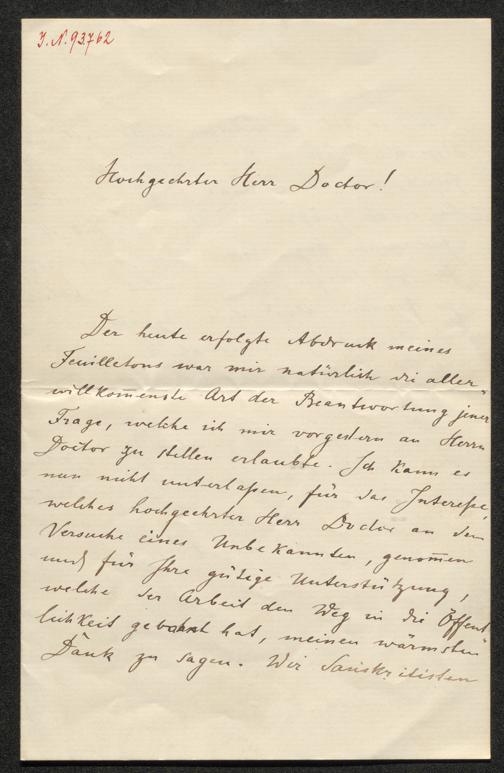 J. N. 93762
Hochgeehrter Herr Doctor!
Der heute erfolgte Abdruck meines
Feuilletons war mir natürlich die aller-
willkom̄enste Art der Beantwortung jener
Frage, welche ich mir vorgestern an Herrn
Doctor zu stellen erlaubte. Ich kann es
nun nicht unterlaßen, für das Intereße,
welches hochgeehrter Herr Doctor an dem
Versuche eines Unbekannten, genom̄en
und für Ihre gütige Unterstützung,
welche der Arbeit den Weg in die Öffent-
lichkeit gebahnt hat, meinen wärmsten
Dank zu sagen. Wir Sanskritisten